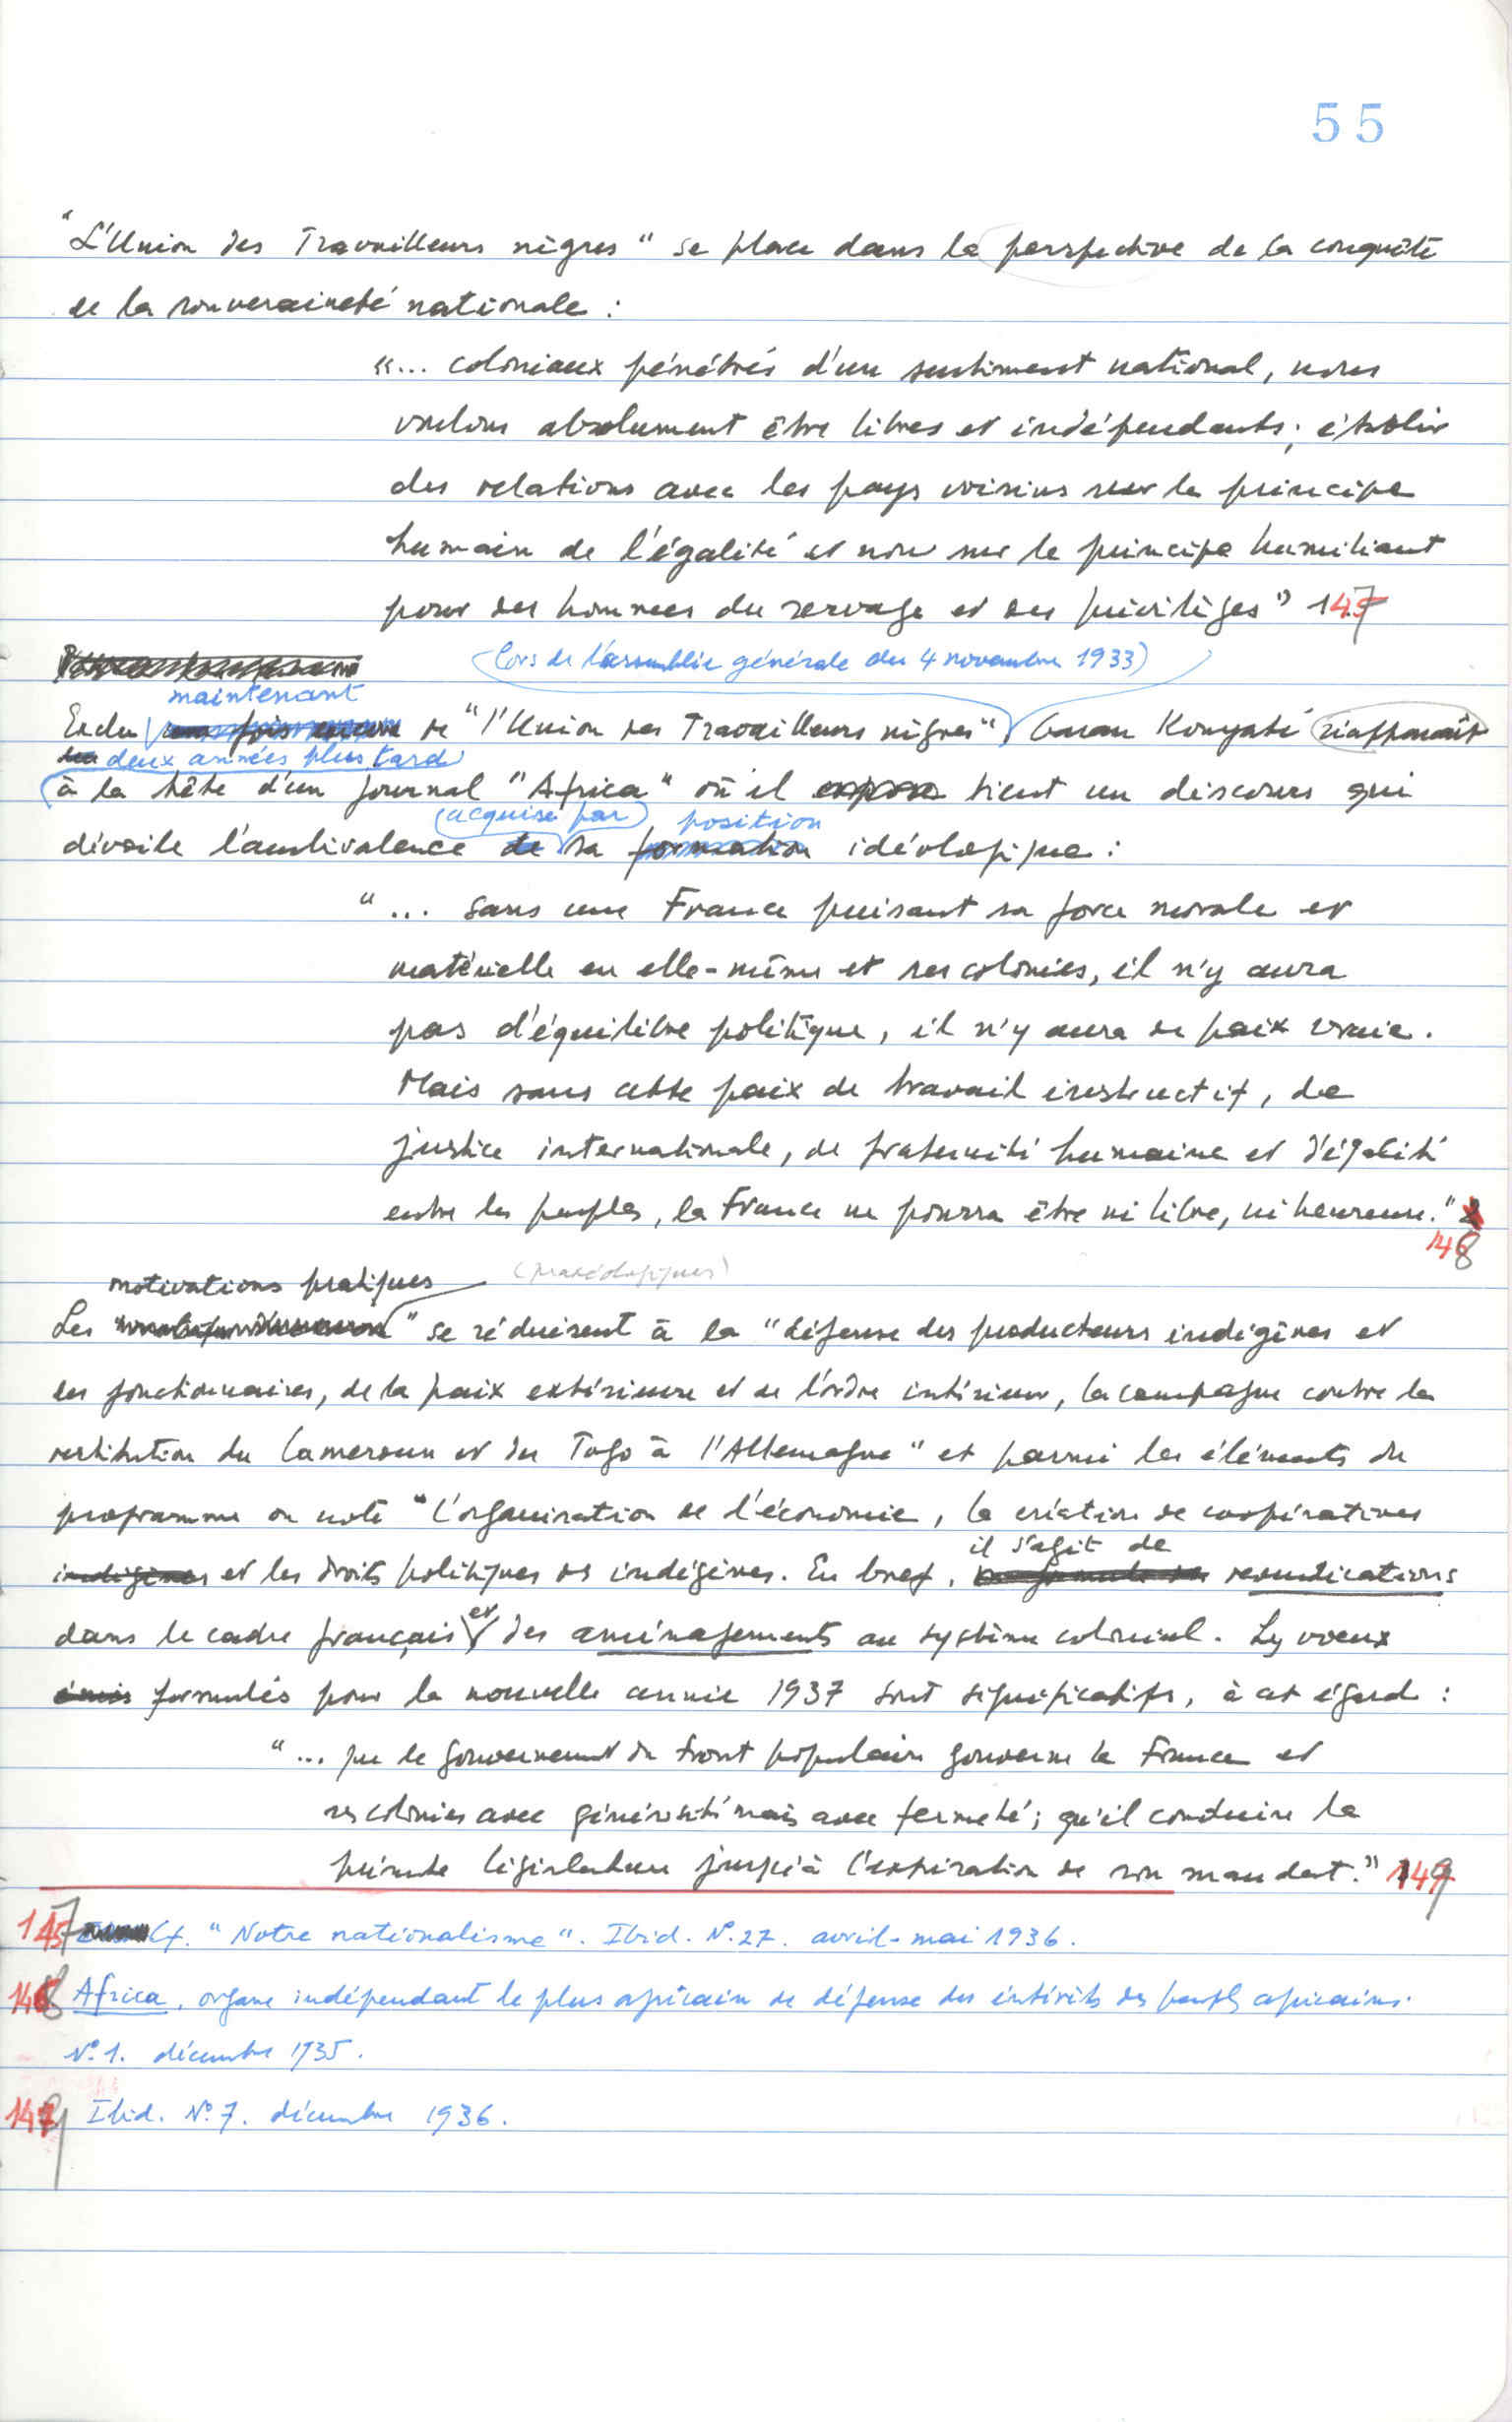 55
"L'Union des Travailleurs nègres" se place dans la perspective de la conquête
de la souveraineté nationale :
"... coloniaux pénétrés d'un sentiment national, nous
voulons absolument être libres et indépendants ; établir
des relations avec les pays voisins sur le principe
humain de l'égalité et non sur le principe humiliant
pour des hommes du servage et des privilèges" 147
(lors de l'assemblée générale du 4 novembre 1933)
maintenant
Exclu une fois encore de "l'Union des Travailleurs nègres" Kouyaté réapparaît
deux années plus tard
à la tête d'un journal "Africa" où il expose tient un discours qui
(acquise par) position
dévoile l'ambivalence de sa formation idéologique :
"... sans une France puisant sa force morale et
matérielle en elle-même et ses colonies, il n'y aura
pas d'équilibre politique, il n'y aura de paix vraie.
Mais sans cette paix de travail , de
justice internationale, de fraternité humaine et d'égalité
entre les peuples, la France ne pourra être ni libre, ni heureuse."
148
motivations pratiques (praxéologiques)
Les " " se réduisent à la "défense des producteurs indigènes et
des fonctionnaires, de la paix extérieure et de l'ordre intérieur, la campagne contre la
restitution du Cameroun et du Togo à l'Allemagne" et parmi les éléments du
programme on note "l'organisation de l'économie, la création de coopératives
il s'agit de
indigènes et les droits politiques des indigènes. En bref, revendications
dans le cadre français et des aménagements au système colonial. Les voeux
émis formulés pour la nouvelle année 1937 sont significatifs, à cet égard :
"... que le gouvernement du front populaire gouverne la France et
ses colonies avec générosité mais avec fermeté ; qu'il conduise la
présente législature jusqu'à l'expiration de son mandat." 149
147 Cf. "Notre nationalisme". Ibid. N°. 27. avril-mai 1936.
148 Africa, organe indépendant le plus africain de défense des intérêts des peuples africains.
N°. 1. décembre 1935.
149 Ibid. N°. 7. décembre 1936.